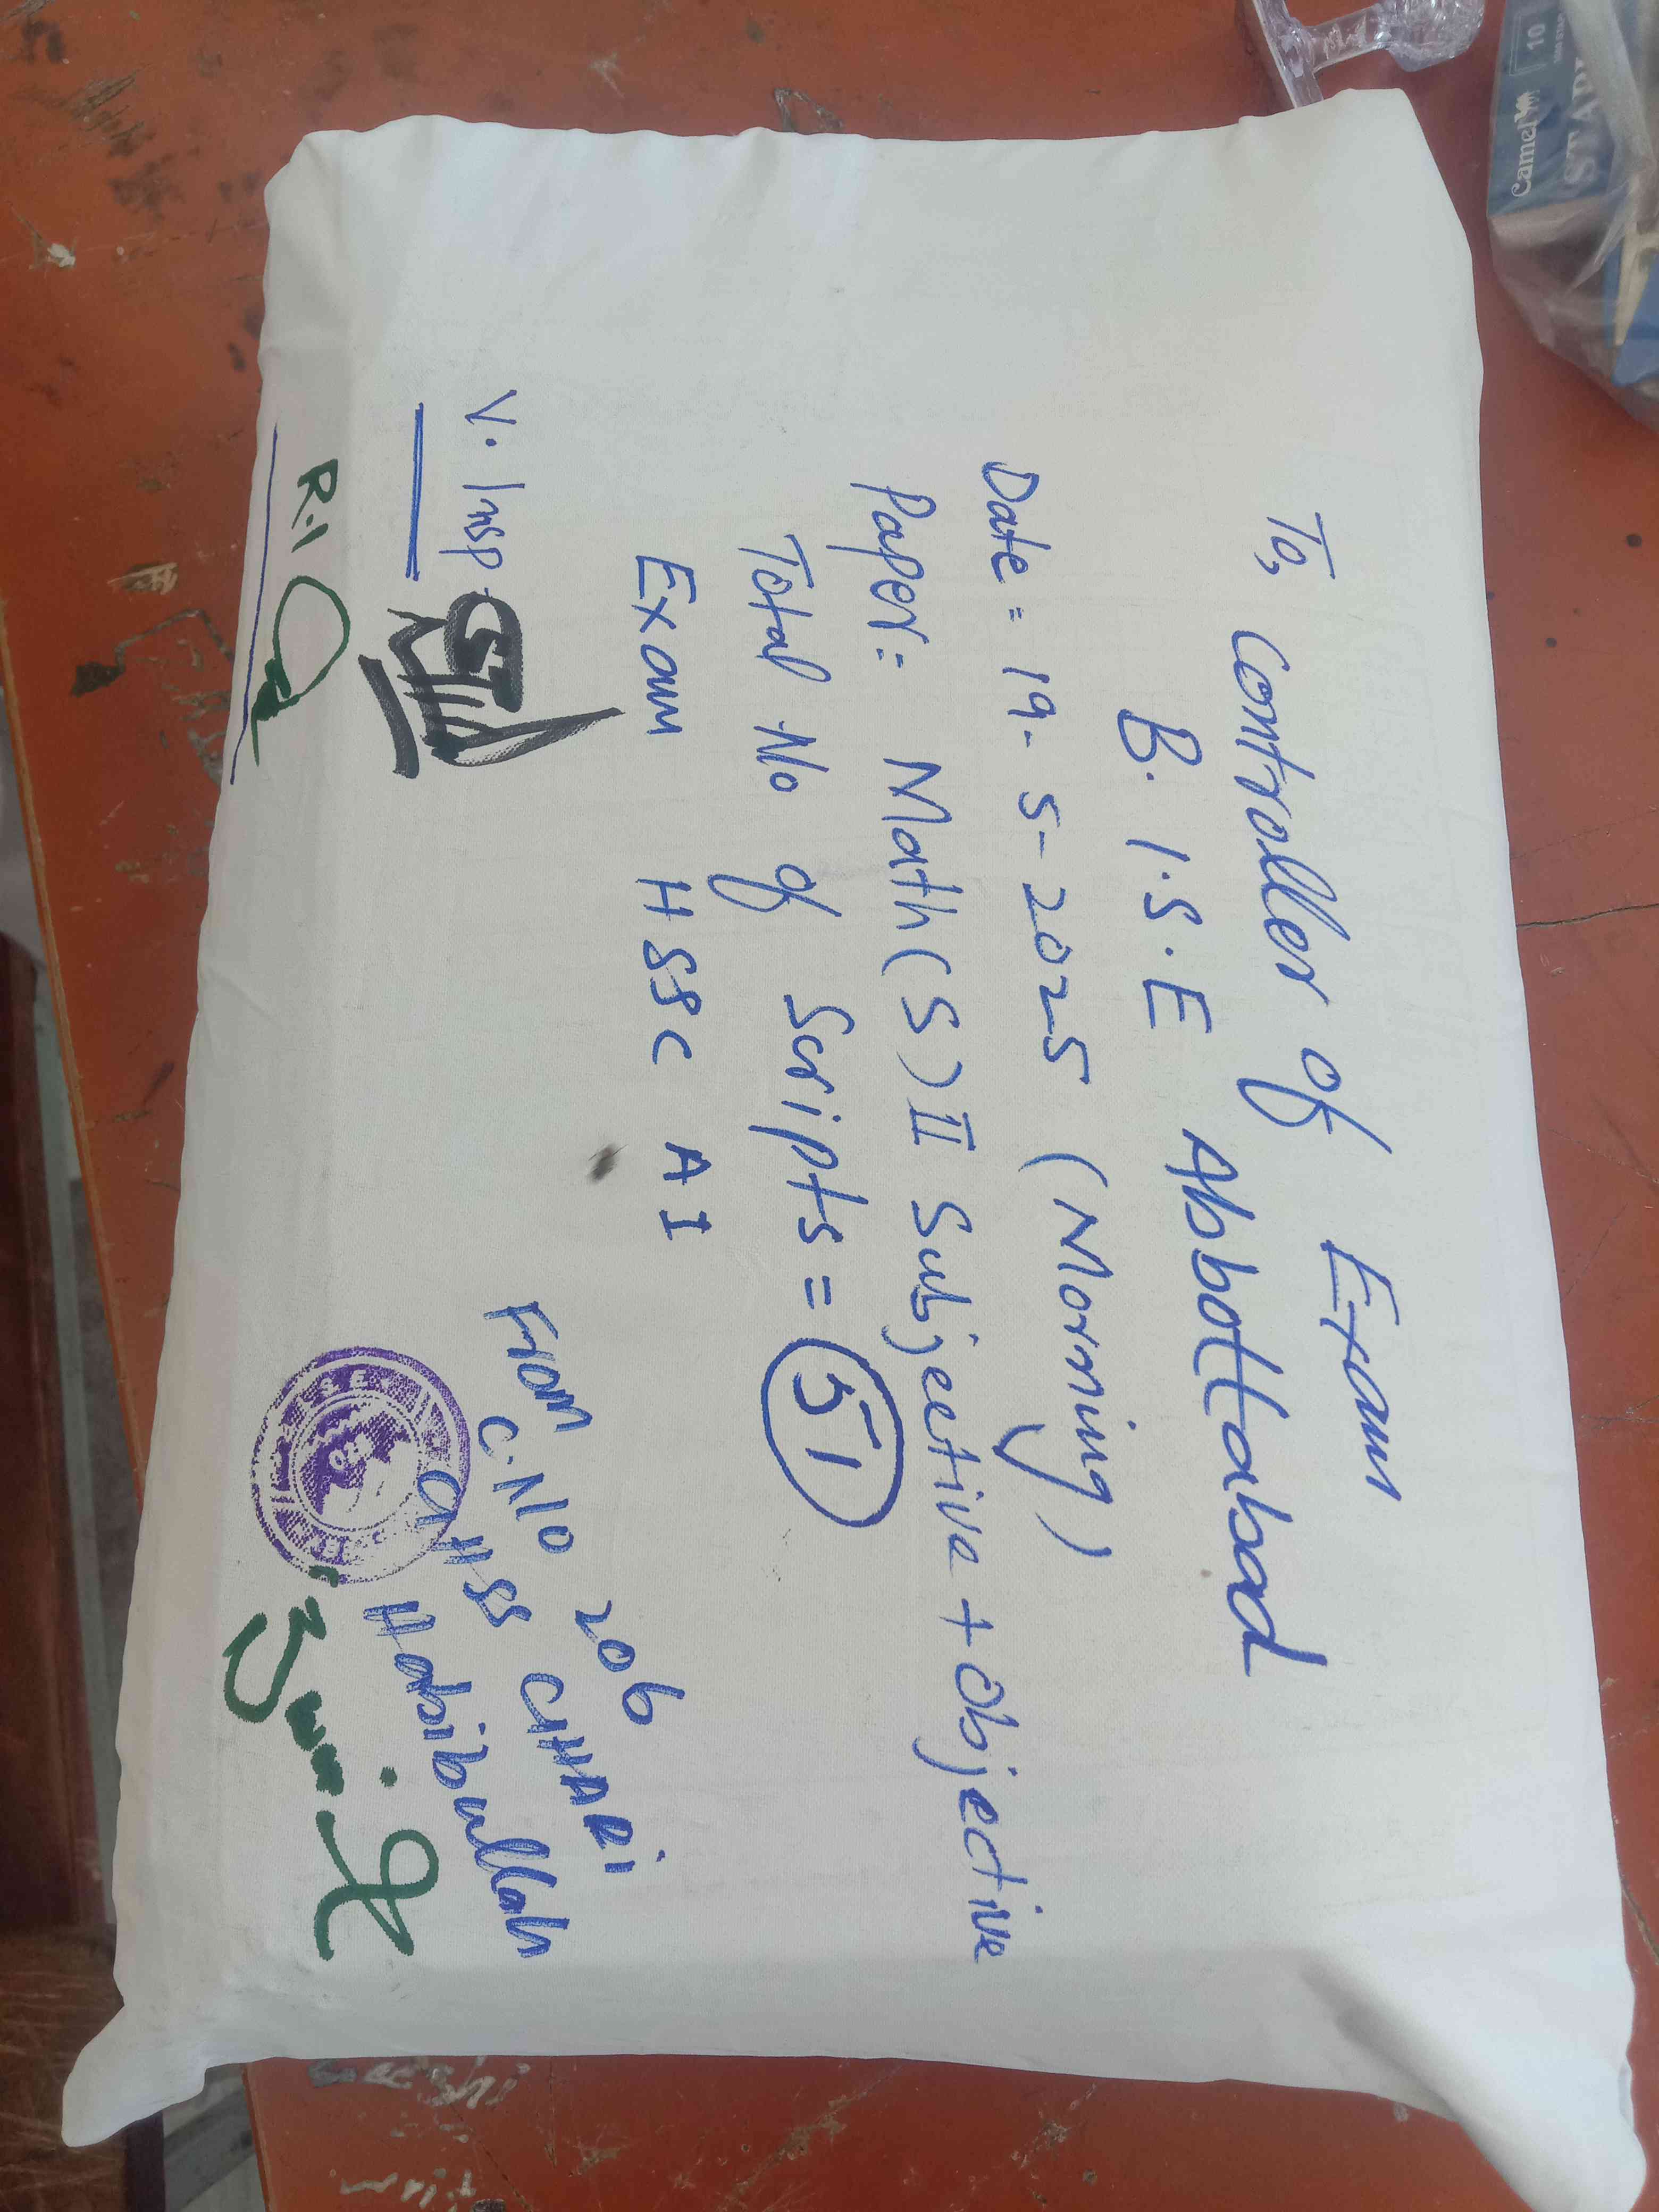 To, Controller of Exam
B.I.S.E Abbottabad
Date = 19-5-2025 (Morning)
Paper: Math (S) II Subjective + Objective
Total No of Scripts = 51
Exam HSSC A I
From
C.No 206
GHSS GHARI
Habibullah
V. Insp.
R.I
Camel
10
STAPL